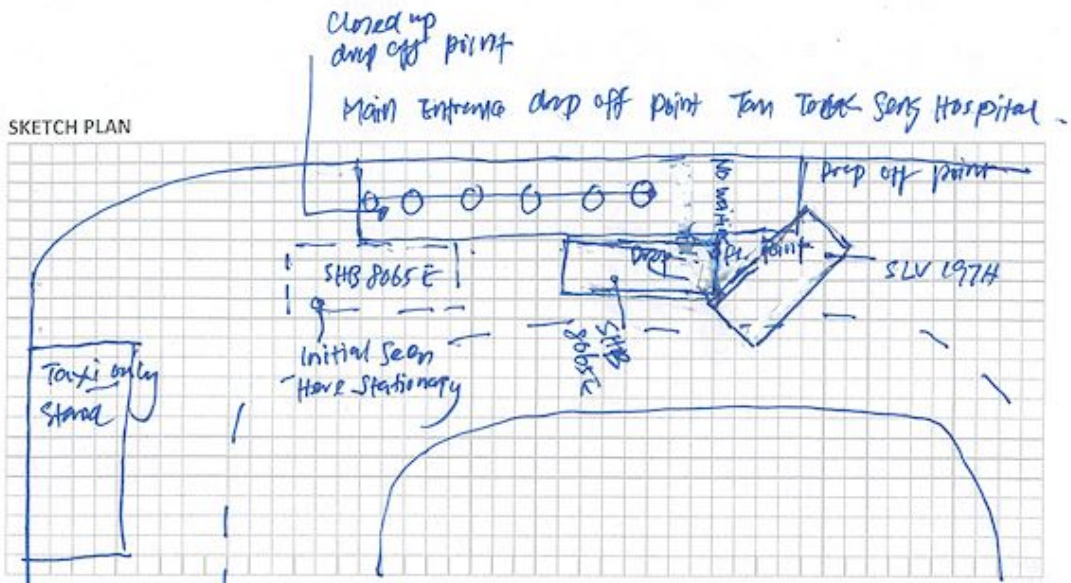 Closed up
drop off point
Main Entrance drop off point Tan Tock Seng Hospital.
SKETCH PLAN
No waiting
Drop off point
SHB 8065E
Drop off Point
SLV 197H
SHB
8065E
Initial Seen
Here Stationary
Taxi only
Stand